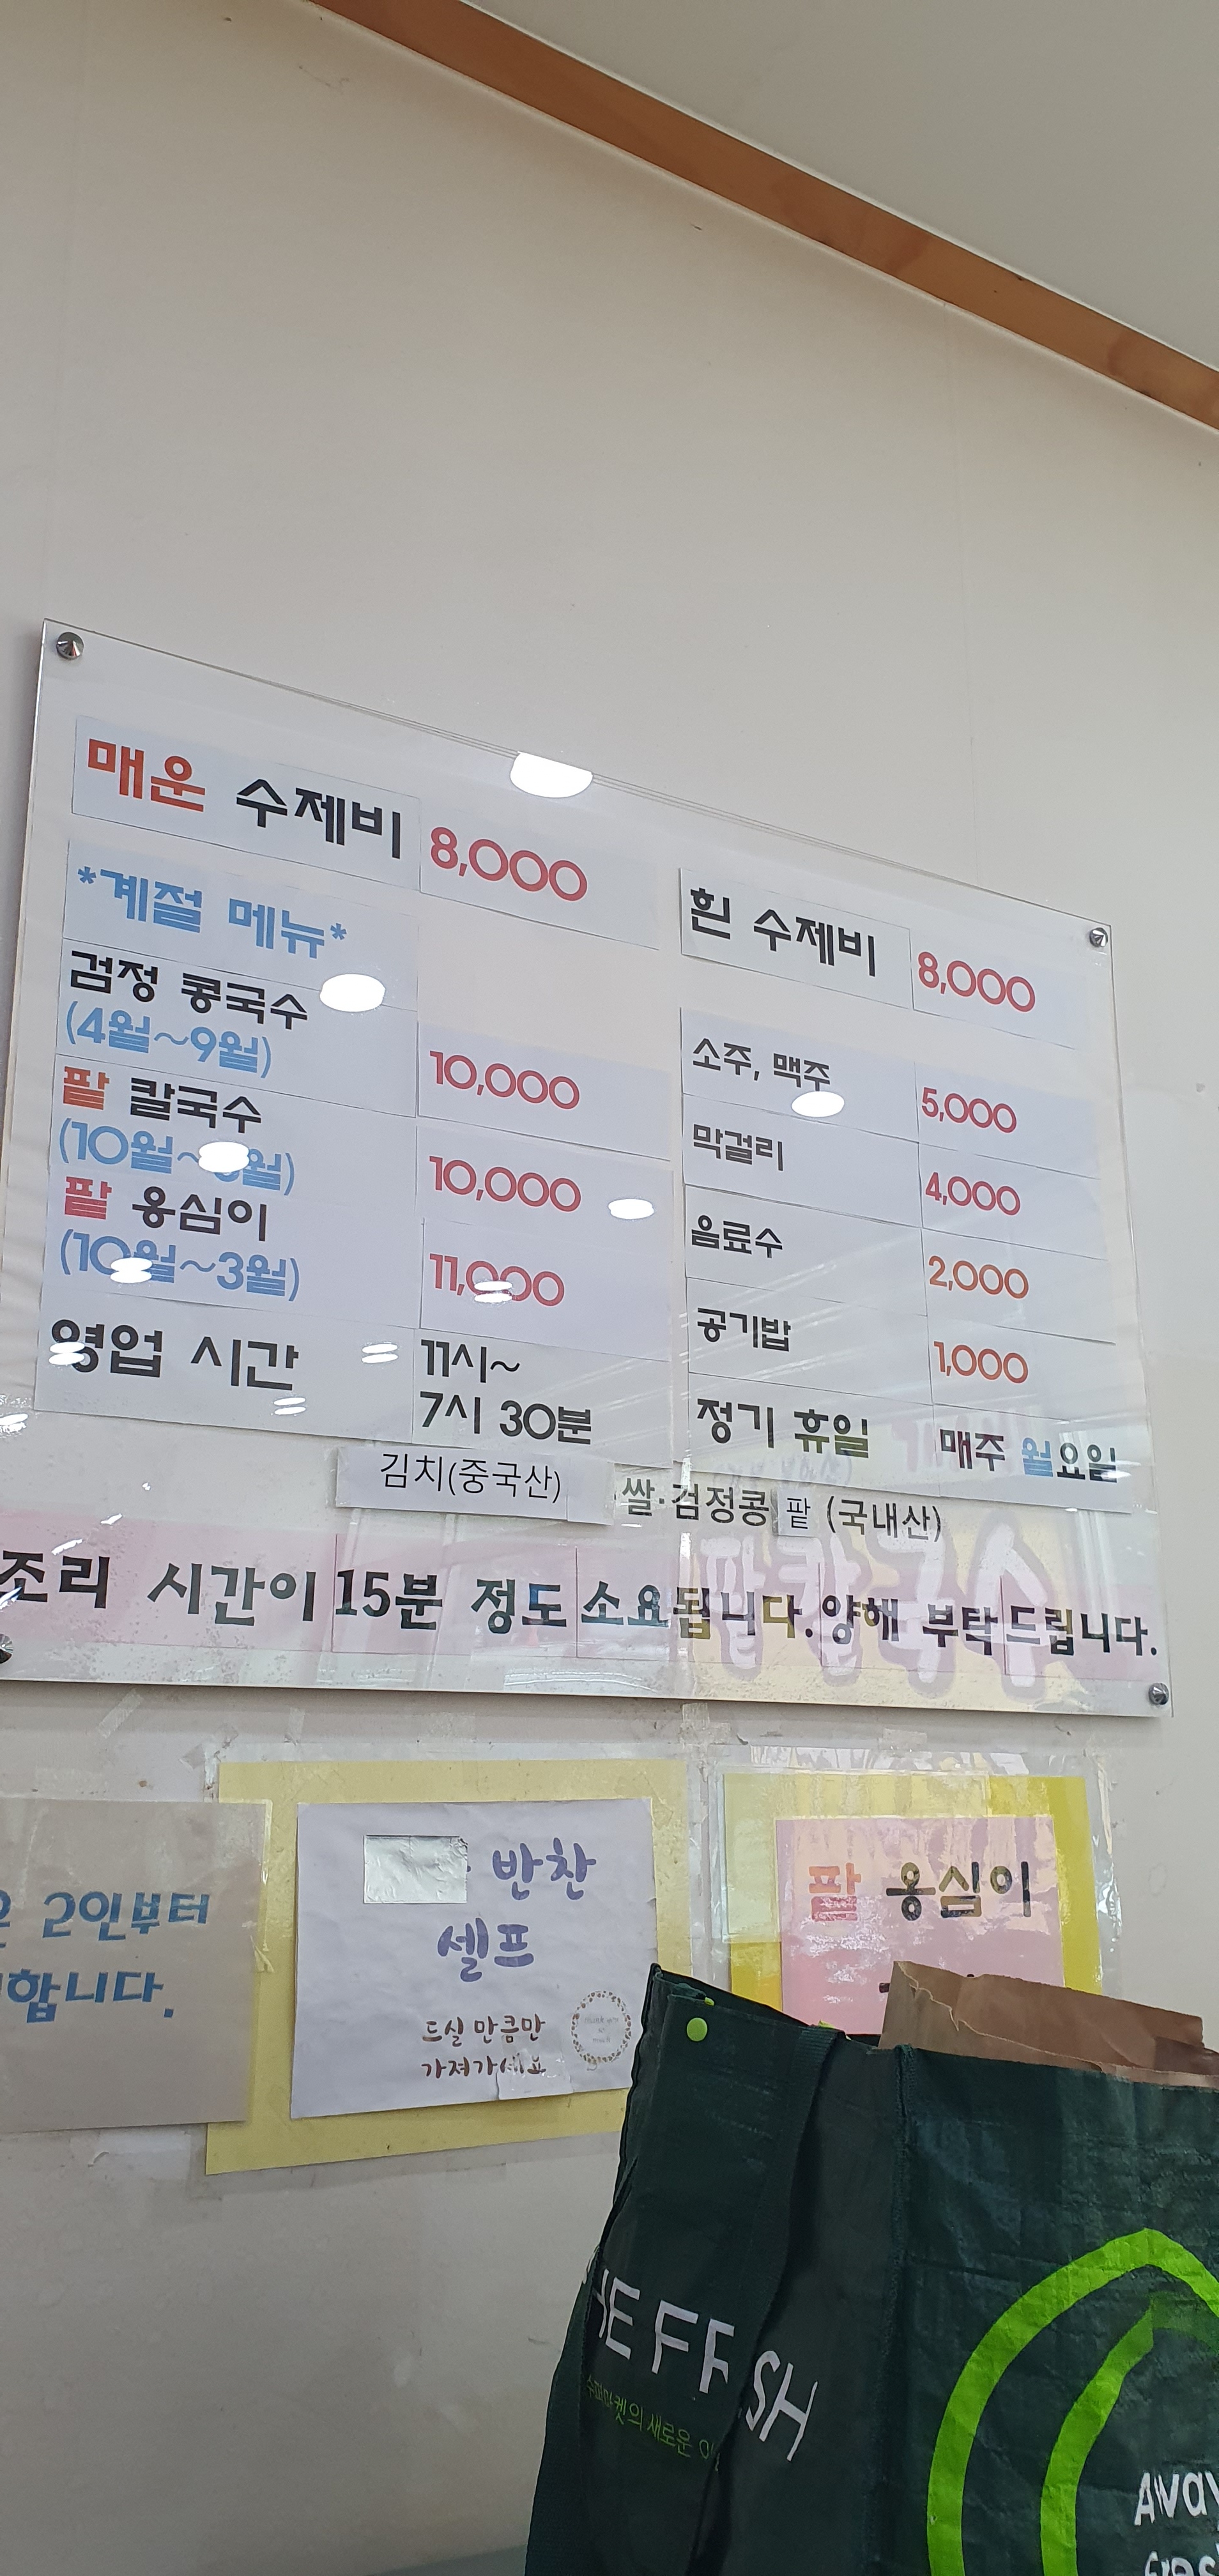 매운 수제비 8,000
*계절 메뉴*
검정 콩국수
(4월~9월) 10,000
팥 칼국수
(10월~ 월) 10,000
팥 옹심이
(10월~3월) 11,000
영업 시간 11시~
7시 30분
흰 수제비 8,000
소주, 맥주 5,000
막걸리 4,000
음료수 2,000
공기밥 1,000
정기 휴일 매주 월요일
김치(중국산) 쌀·검정콩 팥 (국내산)
조리 시간이 15분 정도 소요됩니다. 양해 부탁드립니다.
2인부터
합니다.
반찬
셀프
드실 만큼만
가져가세요
팥 옹심이
HE FRESH
수퍼마켓의 새로운